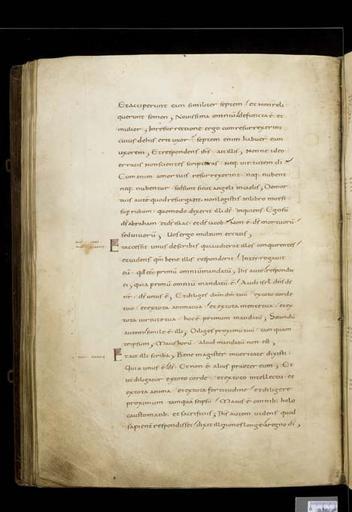 Et acceperunt eam similiter septem et non reli
querunt semen, Novissima omnium defuncta ē et
mulier, In resurrectione ergo cum resurrexerint
cuius de his erit uxor septem enim habuer eam
uxorem, Et respondens ihs ait illis, Non ne ideo
erratis non scientes scripturas neq virtutem di
Cum enim a mortuis resurrexerint neq nubent
neq nubentur sed sunt sicut angeli in caelis, De mor
tuis autē quod resurgant non legistis in libro moysi
sup rubum quomodo dixerit illi ds inquiens Ego sū
ds abraham et ds isaac et ds iacob Non ē ds mortuorū
sed vivorū, Vos ergo multum erratis,
Et accessit unus de scribis qui audierat illos conquirentes
et videns qm bene illis responderit Interrogavit
eū quod eēt primū omniū mandatū, Ihs autē respondit
ei, quia primū omniū mandatū ē Audi isrl dns ds
nr ds unus ē, Et diliges dnm dm tuū ex toto corde
tuo et ex tota anima tua et ex tota mente tua et ex
tota virtute tua hoc ē primum mandatū, Secundū
autem simile ē illi, Diliges proximū tuū tamquam
te ipsum, Maius horū aliud mandatū non est,
Et ait illi scriba, Bene magister in veritate dixisti
Quia unus ē ds Et non ē alius praeter eum, Et
ut diligatur ex toto corde et ex toto intellectu et
ex tota anima et ex tota fortitudine et diligere
proximum tamquā se ipsū Maius ē omnib; holo
caustomatib; et sacrificiis, Ihs autem videns quod
sapienter respondisset dixit illi non es longe a regno di,